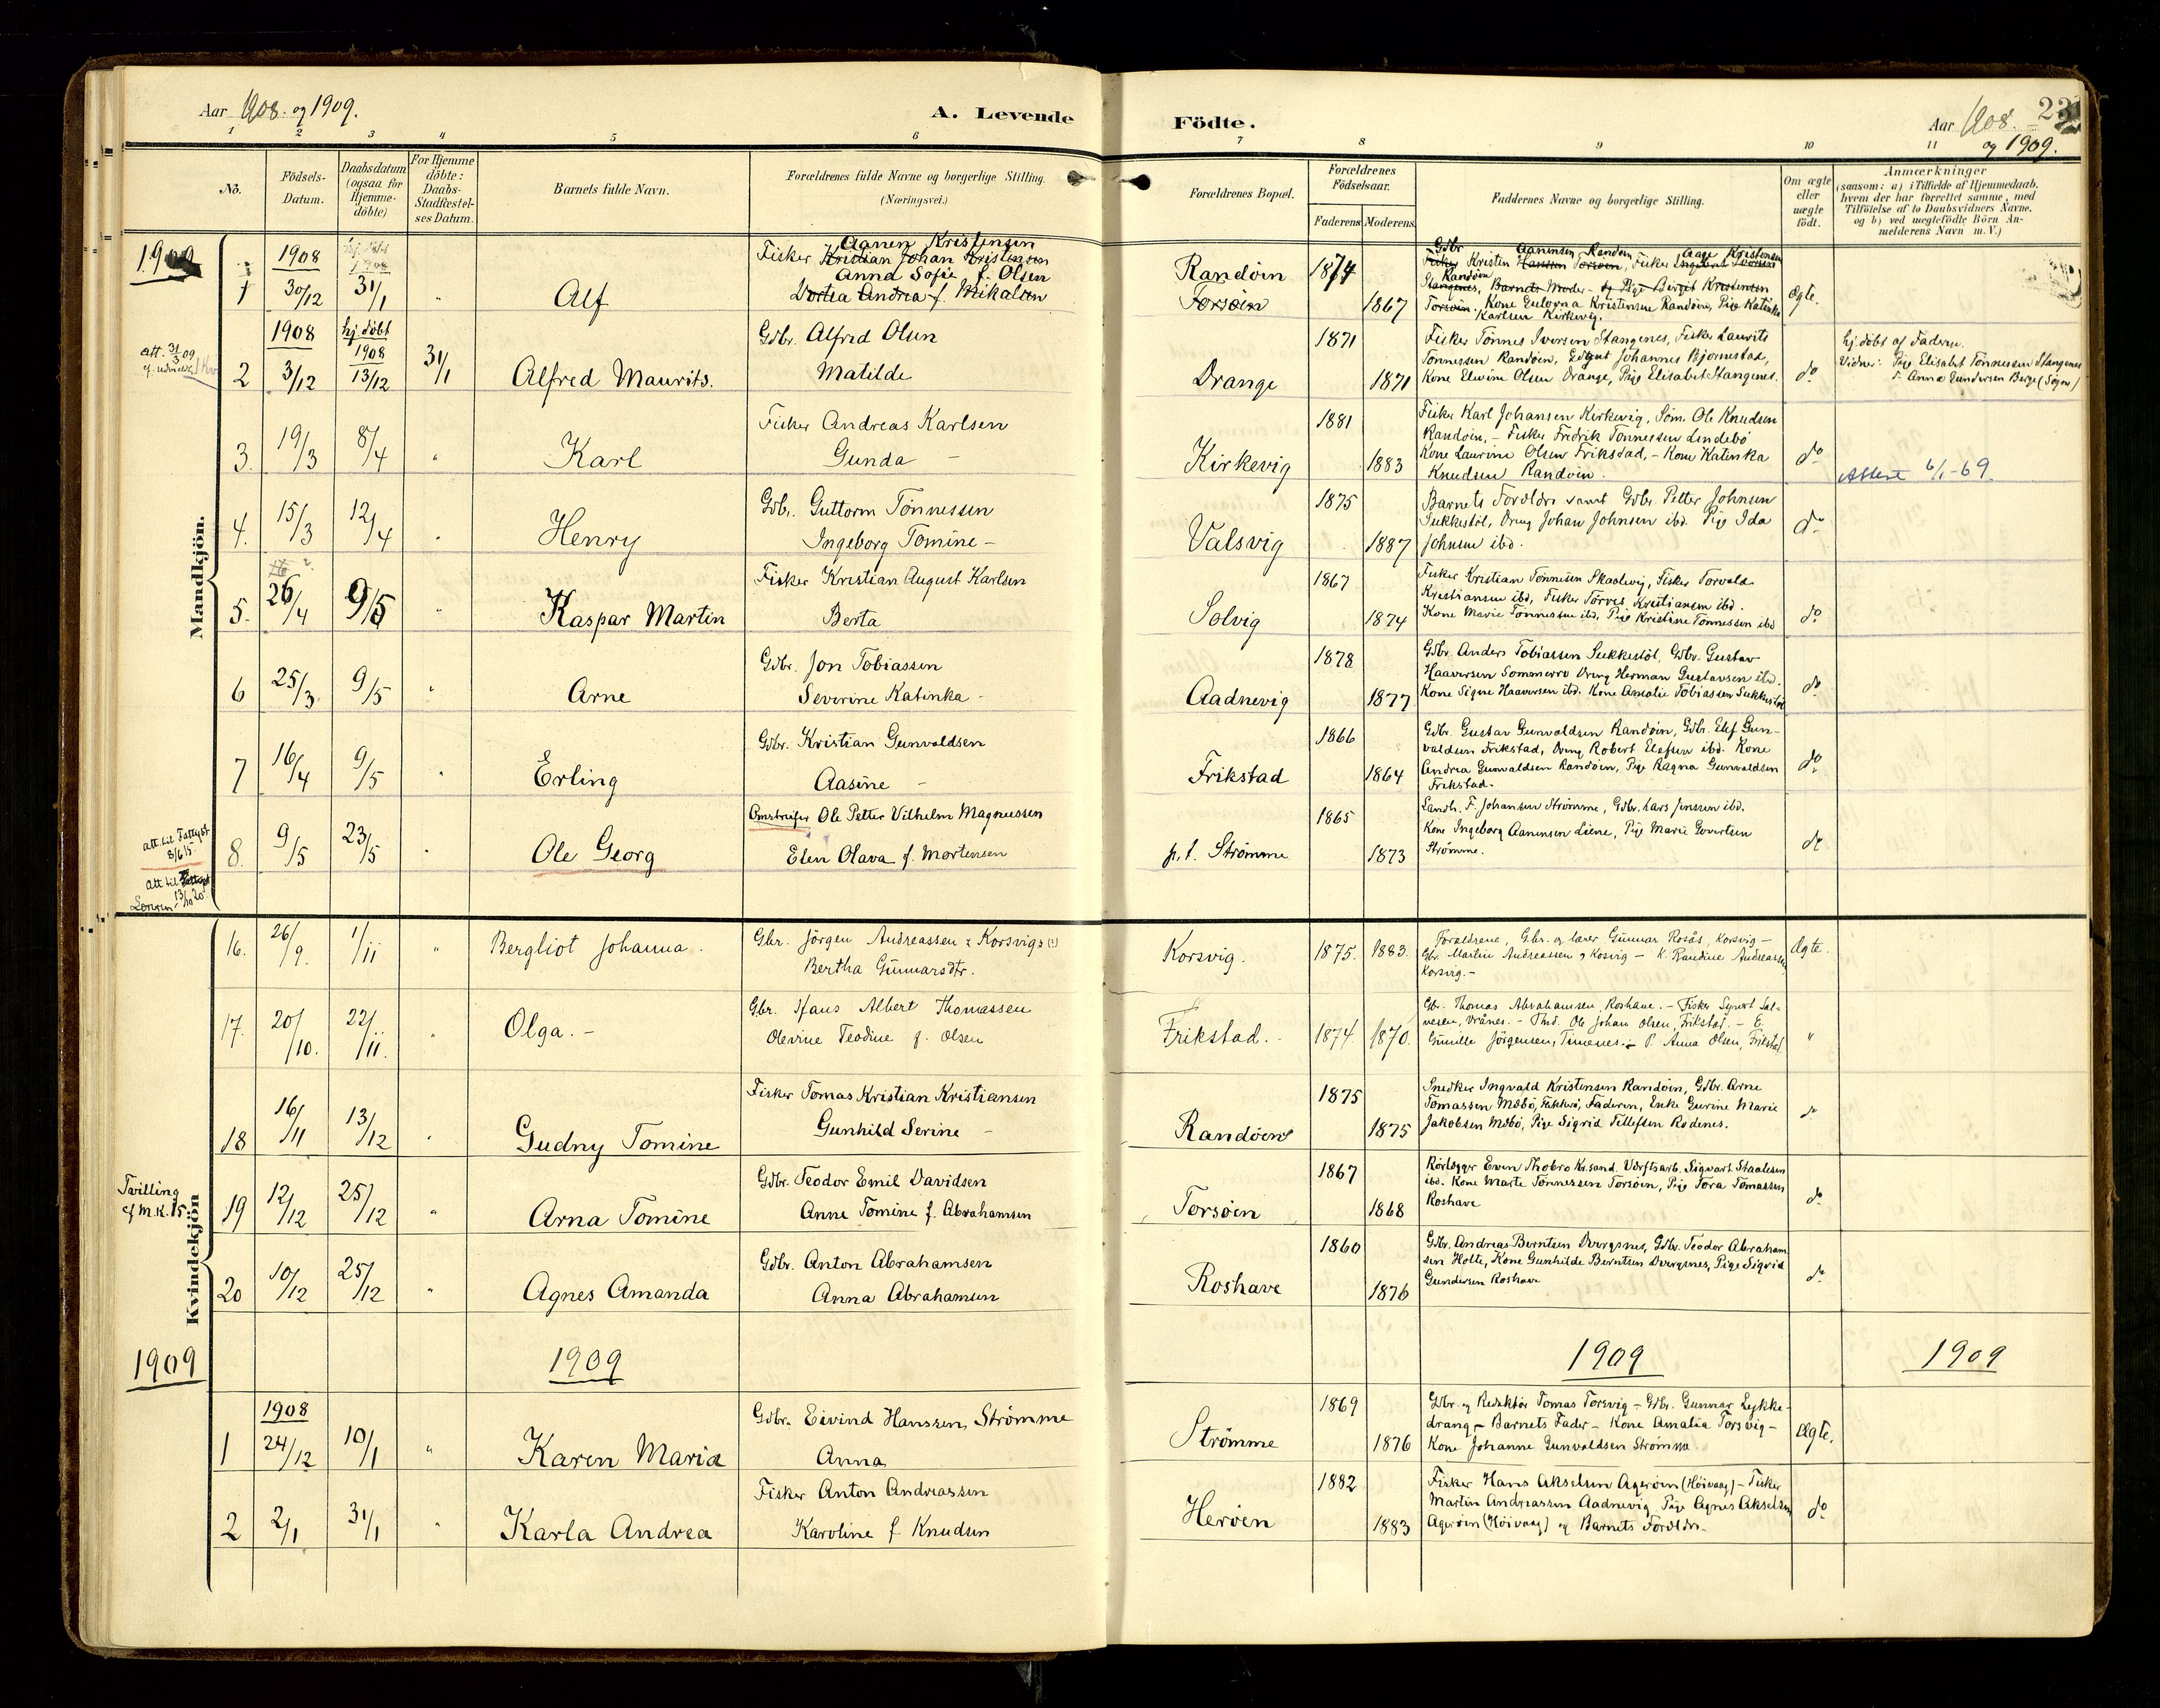 Aar 1908. og 1909.
A. Levende
Födte.
Aar 1908.
og 1909.
1 2 3 4 5 6 7 8 9 10 11
No.
Födsels-
Datum.
Daabsdatum
(ogsaa for
Hjemme-
döbte)
For Hjemme
döbte:
Daabs-
Stadfæstel-
ses Datum.
Barnets fulde Navn.
Forældrenes fulde Navne og borgerlige Stilling.
(Næringsvei.)
Forældrenes Bopæl.
Forældrenes
Födselsaar.
Faderens
Moderens
Faddernes Navne og borgerlige Stilling.
Om ægte
eller
uægte
födt.
Anmærkninger
(saasom: a) i Tilfælde af Hjemmedaab,
hvem der har forrettet samme, med
Tilföielse af to Daabsvidners Navne,
og b) ved uegtefödte Börn An-
melderens Navn m. V.)
1909
Mandkjön.
1
1908
30/12
31/1
"
Alf
Aanen Kristensen
Fisker Kristian Johan Kristensen
Anna Sofie f. Olsen
Dortea Andrea f. Mikalsen
Randöin
Torsöin
1874
1867
Gdbr. Aanensen Randöin Aage Kristensen
Fisker Kristen Hanssen Torsöin, Fisker
Randöin
Stangenes, Barnets Moder - og Pige Bergit Kristensen
Torsöin. Kone Gulovna Kristensen Randöin, Pige Katinka
Karlsen Kirkevig.
Ægte.
att. 31/3 09
2
1908
3/12
hj. döbt
1908
13/12
31/1
Alfred Maurits.
Gdbr. Alfred Olsen
Matilde
Drange
1871
1871
Fisker Tönnes Iversen Stangenes, Fisker Laurits
Tönnessen Randöen, Johannes Bjornestad,
Kone Elvine Olsen Drange, Pige Elisabet Stangenes.
do
hj. döbt af Faderen.
Vidner: Pige Elisabet Tönnessen Stangenes
Anna Gundersen Berge (Sögne)
3.
19/3
8/4
"
Karl
Fisker Andreas Karlsen
Gunda -
Kirkevig
1881
1883
Fisker Karl Johansen Kirkevig, Söm. Ole Knudsen
Randöin, - Fisker Fredrik Tönnessen Lindebö
Kone Laurine Olsen Frikstad, - Kone Katinka
Knudsen Randöin.
do
Attest 6/1-69.
4.
15/3
12/4
"
Henry
Gdbr. Guttorm Tönnessen
Ingeborg Tomine -
Valsvig
1875
1887
Barnets Forældre samt Gdbr. Petter Johnsen
Sukkestöl, Dreng Johan Johnsen ibd. Pige Ida
Johnsen ibd.
do
5.
26/4
9/5
"
Kaspar Martin
Fisker Kristian August Karlsen
Berta
Solvig
1867
1874
Fisker Kristian Tönnesen Skaalevig, Fisker Torvald
Kristiansen ibd, Fisker Törres Kristiansen ibd.
Kone Marie Tönnessen ibd, Pige Kristine Tönnessen ibd
do
6
25/3
9/5
"
Arne
Gdbr. Jon Tobiassen
Severine Katinka -
Aadnevig
1878
1877
Gdbr. Anders Tobiassen Sukkestöl, Gdbr. Gustav
Haaversen Sommerro Dreng Herman Gustavsen ibd.
Kone Signe Haaversen ibd. Kone Amalie Tobiassen Sukkestöl
do
7
16/4
9/5
"
Erling
Gdbr. Kristian Gunvaldsen
Aasine -
Frikstad
1866
1864
Gdbr. Gustav Gunvaldsen Randöin, Gdbr. Elef Gun-
valdsen Frikstad, Dreng Robert Elefsen ibd. Kone
Andrea Gunvaldsen Randöin, Pige Ragna Gunvaldsen
Frikstad.
do
att. til Fattigst
8/6 15.
Att til
13/10 20.
8.
9/5
23/5
"
Ole Georg
Omstreifer Ole Petter Vilhelm Magnussen
Elen Olava f. Mortensen
p. t. Strömme
1865
1873
Landh. F. Johansen Strömme, Gdbr. Lars Jenssen ibd.
Kone Ingeborg Aanensen Liene, Pige Marie Govertsen
Strömme.
do
Kvindekjön
16.
26/9.
1/11
"
Bergliot Johanna.
Gbr. Jörgen Andreassen Korsvig (!)
Bertha Gunnarsdtr.
Korsvig.
1875.
1883.
Foreldrene, Gbr. og lærer Gunnar Rosås, Korsvig -
Gbr. Martin Andreassen, Kosvig - K. Randine Andreassen
Korsvig. -
Ægte.
17.
20/10.
22/11.
"
Olga. -
Gbr. Hans Albert Thomassen
Olevine Teodine f. Olsen
Frikstad.
1874.
1870.
Gbr. Thomas Abrahamsen, Roshave. - Fisker Syvert Sal-
vesen, Drånes. - Tmd. Ole Johan Olsen, Frikstad. - E.
Gunille Jörgensen, Timenes. - P. Anna Olsen, Frikstad.
"
18
16/11
13/12
"
Gudny Tomine
Fisker Tomas Kristian Kristiansen
Gunhild Serine -
Randöen
1875
1875
Snedker Ingvald Kristensen Randöin, Gdbr. Arne
Tomassen Mebö, Faderen, Enke Gurine Marie
Jakobsen Mebö, Pige Sigrid Tellefsen Rödenes.
do
Tvilling
cf M.K. 15.
19
12/12
25/12
"
Arna Tomine
Gdbr. Teodor Emil Davidsen
Anne Tomine f. Abrahamsen
Torsöen
1867
1868
Rörlægger Even Thobro Kr.sand. Værftsarb. Sigvart Staalesen
ibd. Kone Marte Tönnessen Torsöin, Pige Tora Tomassen
Roshave
do
20
10/12
25/12
"
Agnes Amanda
Gdbr. Anton Abrahamsen
Anna Abrahamsen
Roshave
1860
1876
Gdbr. Andreas Berntsen Dvergsnes, Gdbr. Teodor Abraham
sen Holte, Kone Gunhilde Berntsen Dvergsnes, Pige Sigrid
Gundersen Roshave
do
1909
1909
1909
1909
1
1908
24/12
10/1
"
Karen Maria
Gdbr. Eivind Hanssen, Strömme
Anna
Strömme
1869
1876
Gdbr. og Redaktör Tomas Torsvig - Gdbr. Gunnar Lykke-
drang - Barnets Fader - Kone Amalia Torsvig -
Kone Johanne Gunvaldsen Strömme
Ægte.
2
2/1
31/1
"
Karla Andrea
Fisker Anton Andreassen
Karoline f Knudsen
Heröen
1882
1883
Fisker Hans Akselsen Ageröin (Höivaag) - Fisker
Martin Andreassen Aadnevig, Pige Agnes Akselsen
Ageröin (Höivaag) og Barnets Forældre.
do